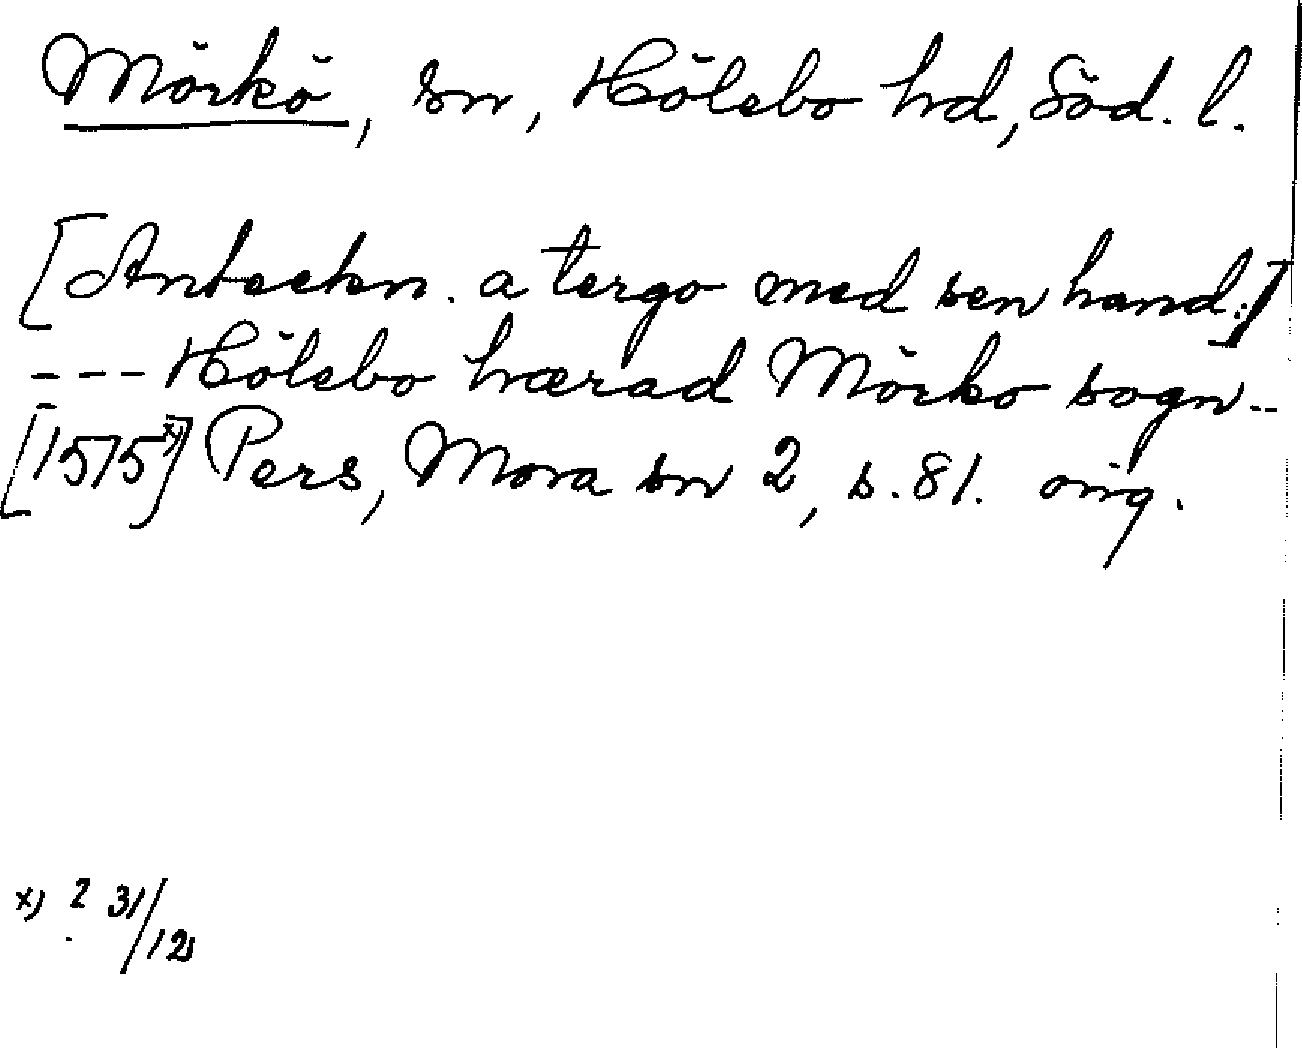 Mörkö, sn, Hölebo hd, Söd. l.
[Anteckn. a tergo med sen hand:]
--- Hölebo hærad Mörko sogn --
[1575x)] Pers, Mora sn 2, s. 81. orig.
x) ? 31/12